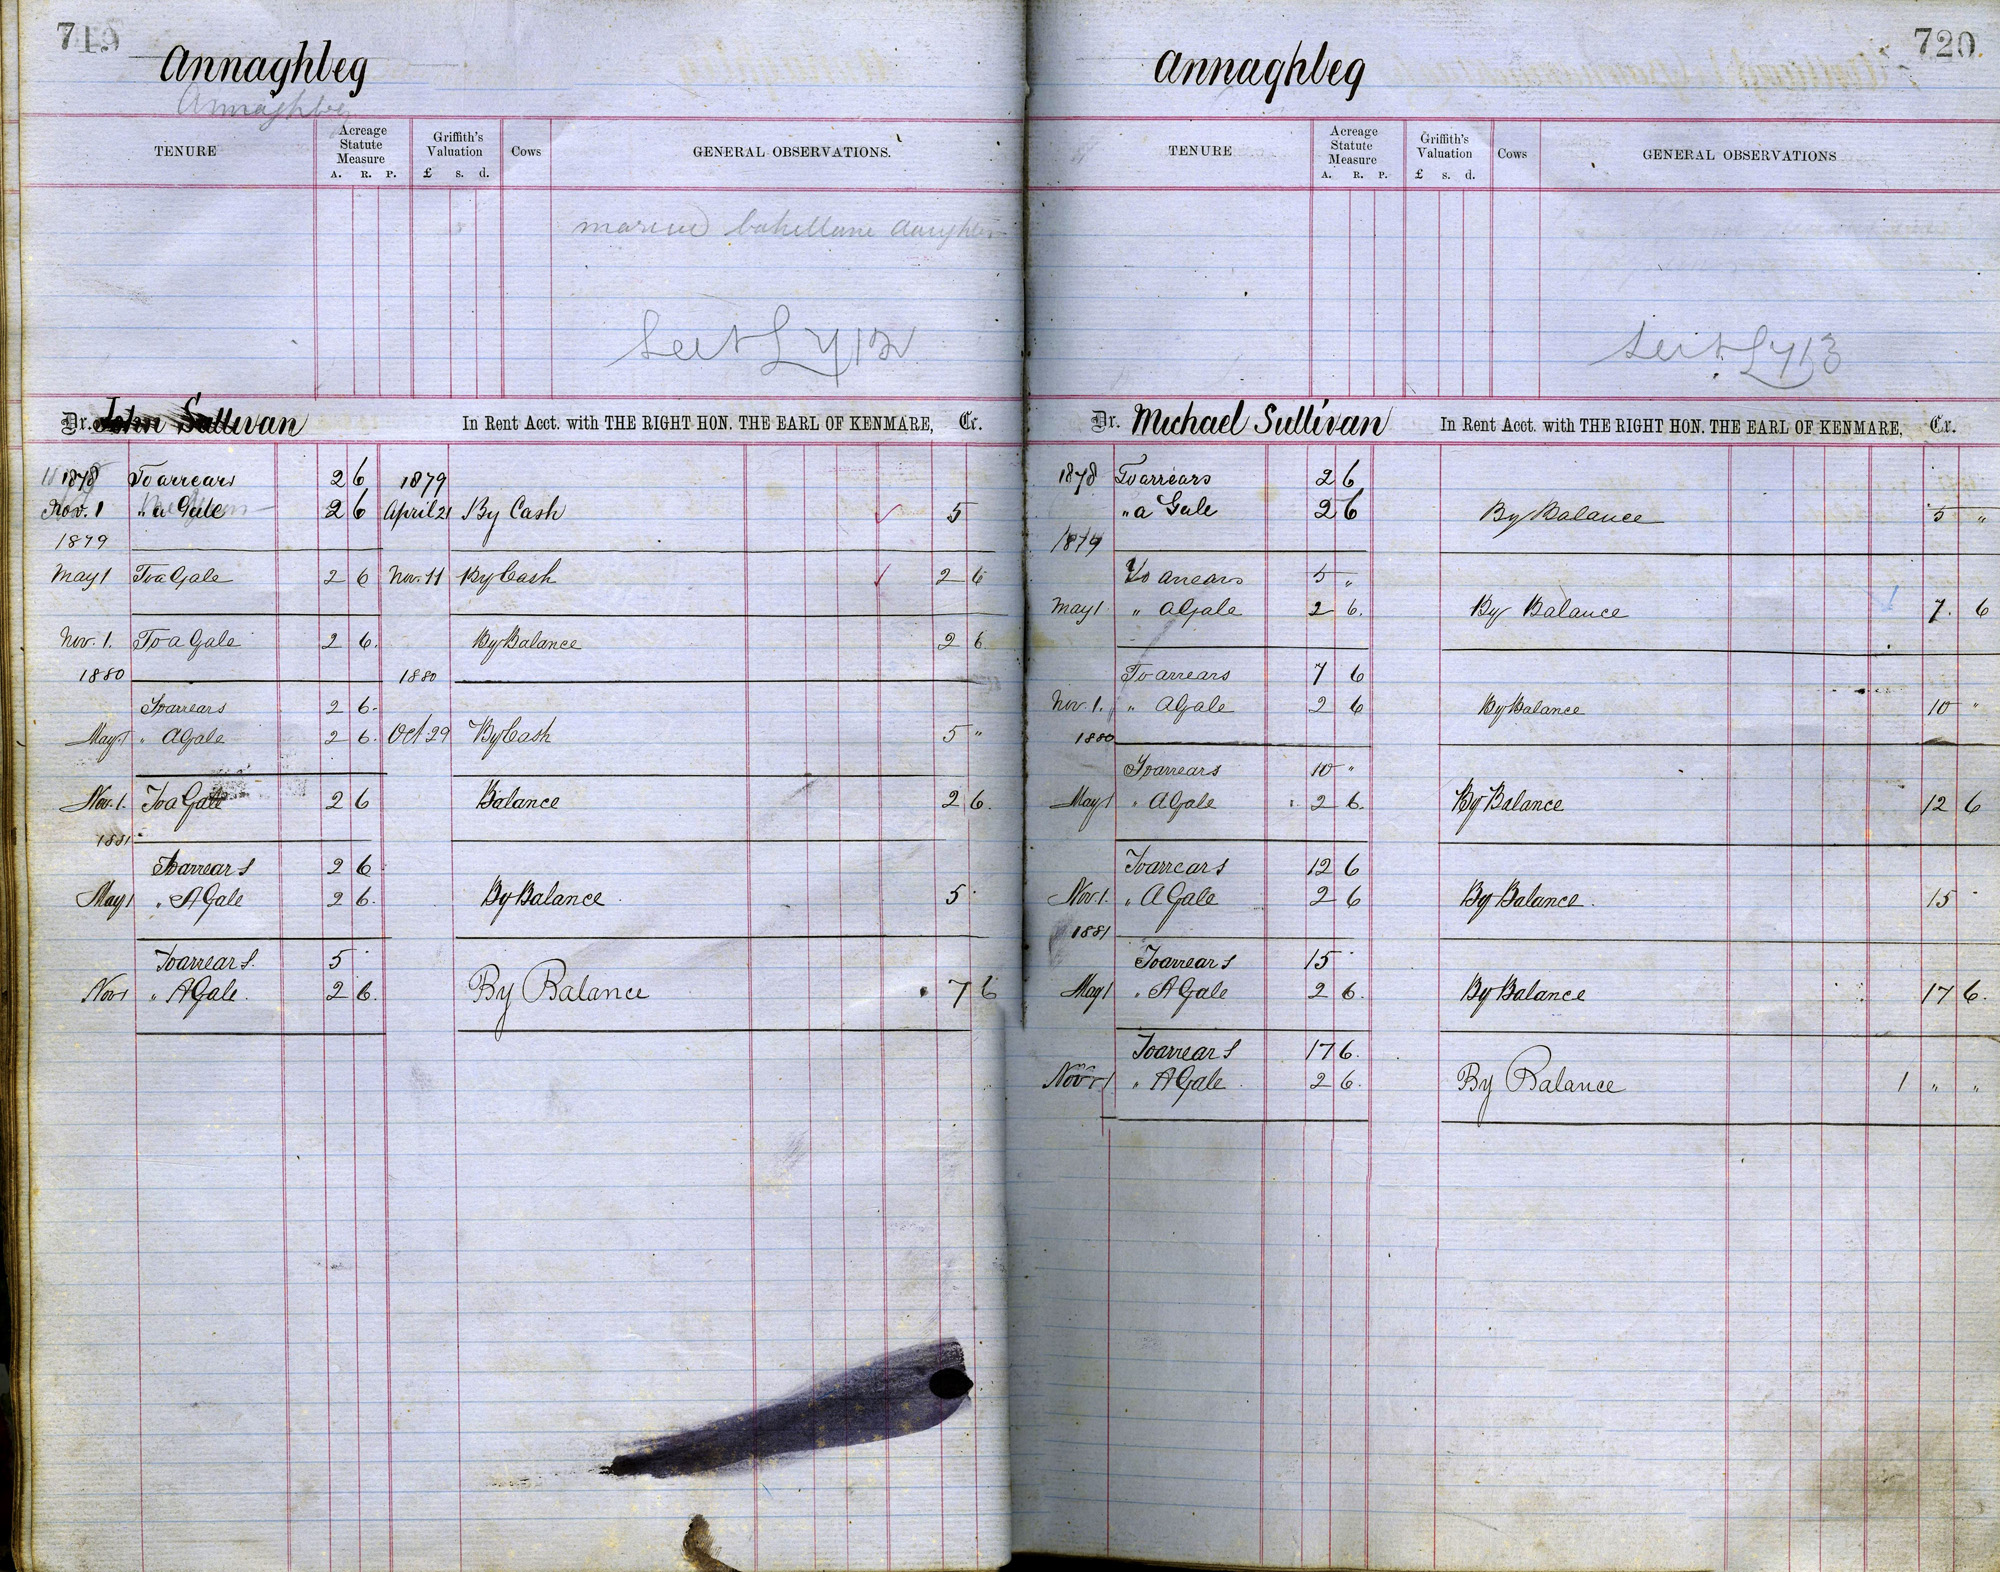 719
Annaghbeg
Annaghbeg
TENURE
Acreage Statute Measure
A. R. P.
Griffith's Valuation
£ s. d.
Cows
GENERAL OBSERVATIONS.
daughter
Dr. John Sullivan In Rent Acct. with THE RIGHT HON. THE EARL OF KENMARE, Cr.
1878 To arrears 2 6 1879
Nov. 1 " a Gale 2 6 April 21 By Cash 5
1879
May 1 To a Gale 2 6 Nov. 11 By Cash 2 6
Nov. 1. To a Gale 2 6. By Balance 2 6
1880 1880
To arrears 2 6.
May 1 " A Gale 2 6. Oct 29 By Cash 5 "
Nov. 1. To a Gale 2 6 Balance 2 6.
1881
To arrears 2 6
May 1 " A Gale 2 6. By Balance 5
To arrears. 5
Nov 1 " A Gale. 2 6. By Balance 7 6
720
Annaghbeg
TENURE
Acreage Statute Measure
A. R. P.
Griffith's Valuation
£ s. d.
Cows
GENERAL OBSERVATIONS
Dr. Michael Sullivan In Rent Acct. with THE RIGHT HON. THE EARL OF KENMARE, Cr.
1878 To arrears 2 6
" a Gale 2 6 By Balance 5 "
1879
To arrears 5 "
May 1 " a Gale 2 6. By Balance 7. 6
To arrears 7 6
Nov. 1. " A Gale 2 6 By Balance 10 "
1880
To arrears 10 "
May 1 " A Gale 2 6. By Balance 12 6
To arrears 12 6
Nov. 1. " A Gale 2 6 By Balance. 15
1881
To arrears 15
May 1 " A Gale 2 6. By Balance 17 6.
To arrears 17 6.
Nov 1 " A Gale. 2 6. By Balance 1 " "